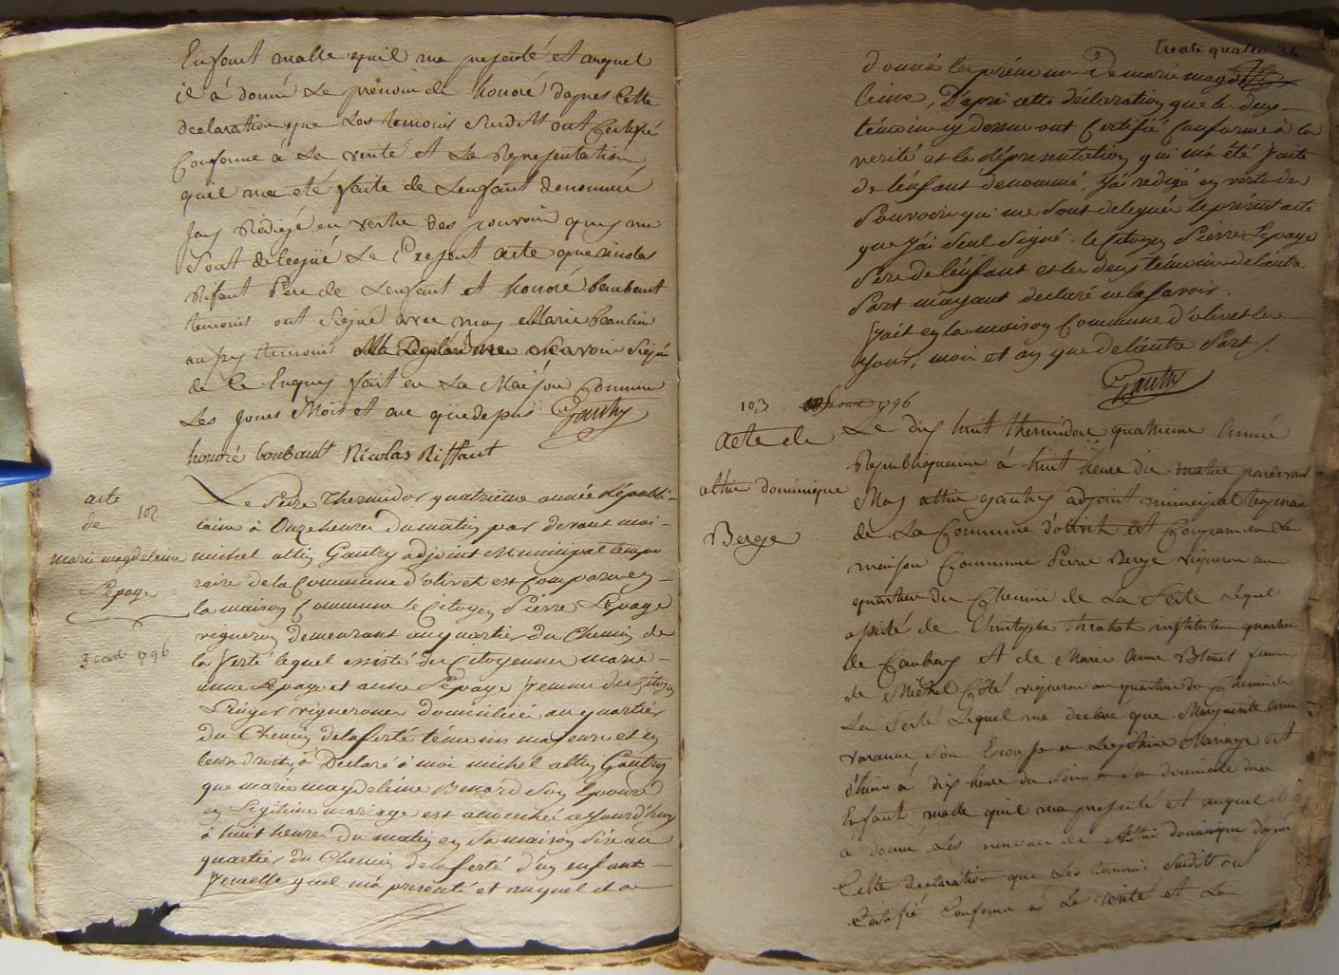 Enfant malle quil ma presenté et auquel
il à donné Le prénom de honoré dapres Cette
declaration que Les temoins Susdits ont Certifié
Conforme à La verité et La Representation
quil ma eté faite de Lenfant denommé
Jay Rédigé en vertu des pouvoir quy me
Sont delegué Le Present acte que nicolas
Rifant Pere de Lenfant et honoré boubaut
temoins ont Signé avec moy Marie
aussy temoins a Déclaré ne Scavoir Signé
de Ce Enquis fait en La Maison Commune
Les Jours Mois et an que depus Gautry
honoré boubault Nicolas Riffaut
acte
de 102
marie magdeleine
Lepage
1796
Le Seize Thermidor quatrieme année Républi-
caine à Onze heures du matin par devant moi-
michel altin Gautry adjoint Municipal tempo
raire de la Commune d'olivet est Comparu en-
la maison Commune le Citoyen Pierre Lepage
vigneron demeurant au quartier du Chemin de
la ferté lequel assisté des Citoyennes marie-
anne Lepage et anne Lepage femme du Citoyen
vigneronnes domiciliées au quartier
du Chemin de la ferté témoins majeures et en
leurs droits, à Déclaré à moi michel altin Gautry
que marie magdeleine Benard Son Epouse
en Légitime mariage est accouchée aujourd'huy
à huit heures du matin en Sa maison Size au
quartier du Chemin de la ferté d'un enfant-
femelle quil m'a presenté et auquel il a
trente quatre
donné les prénoms De marie magde
leine, D'après cette déclaration que les deux-
témoins y dessus ont Certifié Conforme à la
verité et la représentation qui m'a été faite
de l'enfant denommé, J'ai redigé en vertu des
Pouvoirs qui me Sont delegués le present acte
que J'ai Seul Signé. le Citoyen Pierre Lepage
Père de l'enfant et les deux témoins de l'autre
Part m'ayant declaré ne le Savoir.
fait en la maison Commune d'olivet les
Jour, mois et an que de l'autre Part.
Gautry
103 1796
acte de
altin dominique
Berge
Le dix huit thermidore quatrieme année
Republiquenne à huit heure du matin pardevant
Moy altin gautry adjoint municipal temporaire
de La Commune d'olivet est Comparu en La
maison Commune Pierre Berge vigneron au
quartier du Chemin de La Ferté lequel
assisté de Christophe instituteur quartier
de Caubray et de Marie anne femme
de Michel Côté vigneron au quartier du Chemin de
La Ferté Lequel me declare que Marguerite
varanne Son Epouse en Legitime Mariage est
d'hier à dix heure du Soir en Son domicile dun
Enfant malle quil ma presenté et auquel il
a donné Les prenoms de altin dominique dapres
Cette declaration que Les temoins Susdits ont
Certifié Conforme à La verité et La